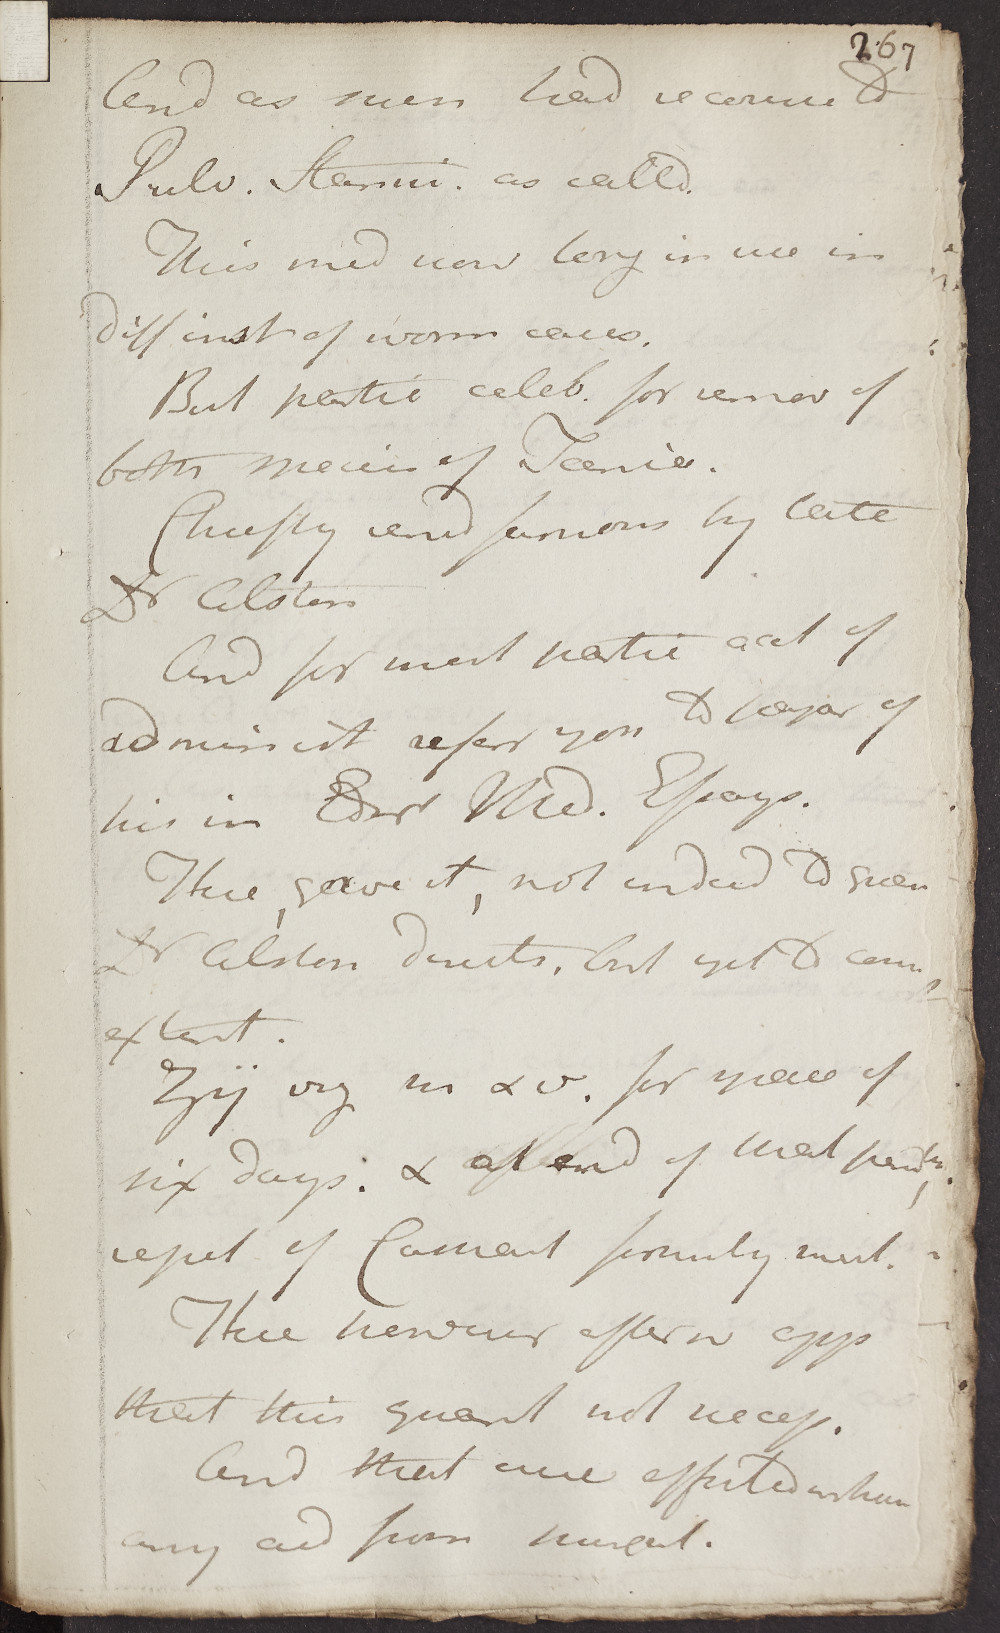 267
And as such had recourse to
Pulv. Stanni. as calld.
This med now long in use in
diff inst of worm cases.
But partic celeb. for remov of
both species of Taenia.
Chiefly rend famous by late
Dr Alston
And for most partic acct of
administ refer you to paper of
his in Edinr Med. Essays.
Here, gave it, not indeed to quan
Dr Alston directs, but yet to cons
extent.
ʒij evy m & v. for space of
six days. & at end of that
repet of Cathart formerly ment.
Here however afterw app
that this quant not necess.
And that cure effected without
any aid from purgat.